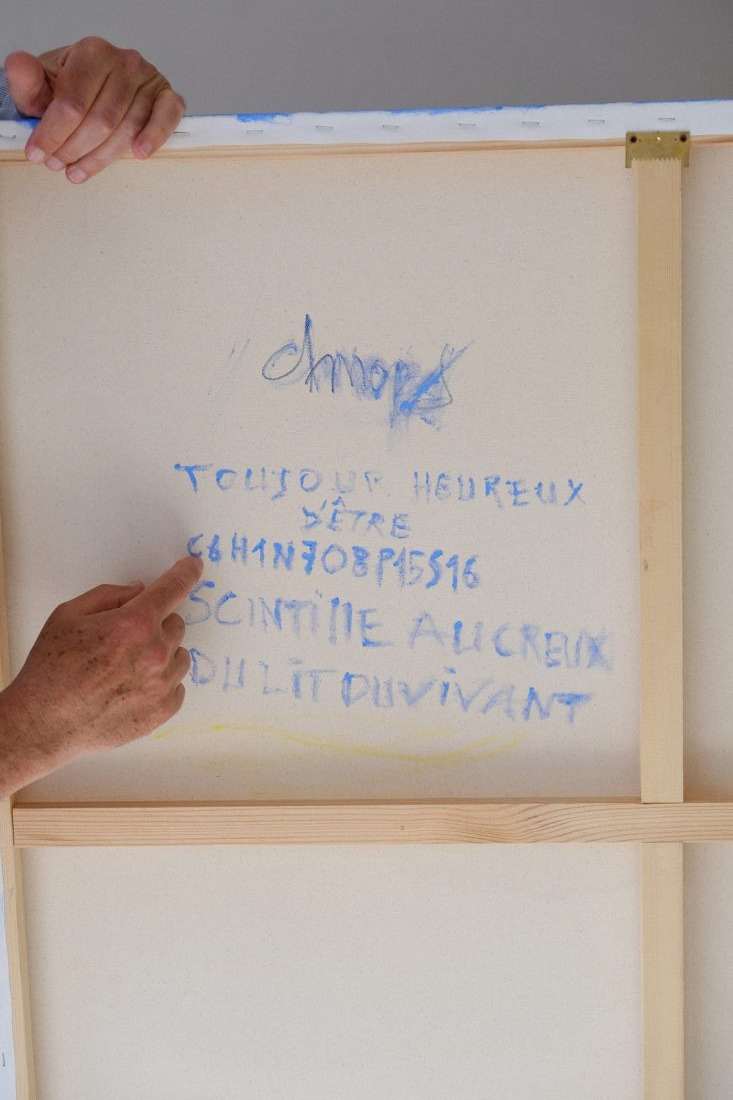 chnops
TOUJOUR HEUREUX
D'ÊTRE
C6H1N7O8P15S16
SCINTILLE AU CREUX
DU LIT DU VIVANT